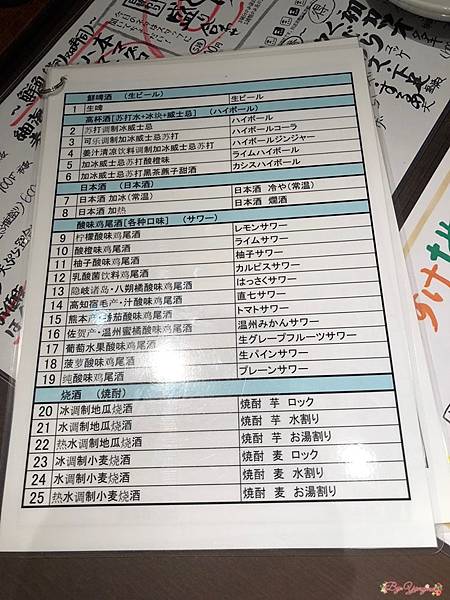 鮮啤酒 (生ビール)
1 生啤 生ビール
高杯酒[苏打水+冰块+威士忌] (ハイボール)
2 苏打调制加冰威士忌 ハイボール
3 可乐调制加冰威士忌苏打 ハイボールコーラ
4 姜汁清凉饮料调制加冰威士忌苏打 ハイボールジンジャー
5 加冰威士忌苏打酸橙味 ライムハイボール
6 加冰威士忌苏打黑茶藨子甜酒 カシスハイボール
日本酒 (日本酒)
7 日本酒 加冰(常温) 日本酒 冷や(常温)
8 日本酒 加热 日本酒 燗酒
酸味鸡尾酒[各种口味] (サワー)
9 柠檬酸味鸡尾酒 レモンサワー
10 酸橙味鸡尾酒 ライムサワー
11 柚子酸味鸡尾酒 柚子サワー
12 乳酸菌饮料鸡尾酒 カルピスサワー
13 隐岐诸岛・八朔橘酸味鸡尾酒 はっさくサワー
14 高知宿毛产・汁酸味鸡尾酒 直七サワー
15 熊本产・番茄酸味鸡尾酒 トマトサワー
16 佐贺产・温州蜜橘酸味鸡尾酒 温州みかんサワー
17 葡萄水果酸味鸡尾酒 生グレープフルーツサワー
18 菠萝酸味鸡尾酒 生パインサワー
19 纯酸味鸡尾酒 プレーンサワー
烧酒 (焼酎)
20 冰调制地瓜烧酒 焼酎 芋 ロック
21 水调制地瓜烧酒 焼酎 芋 水割り
22 热水调制地瓜烧酒 焼酎 芋 お湯割り
23 冰调制小麦烧酒 焼酎 麦 ロック
24 水调制小麦烧酒 焼酎 麦 水割り
25 热水调制小麦烧酒 焼酎 麦 お湯割り